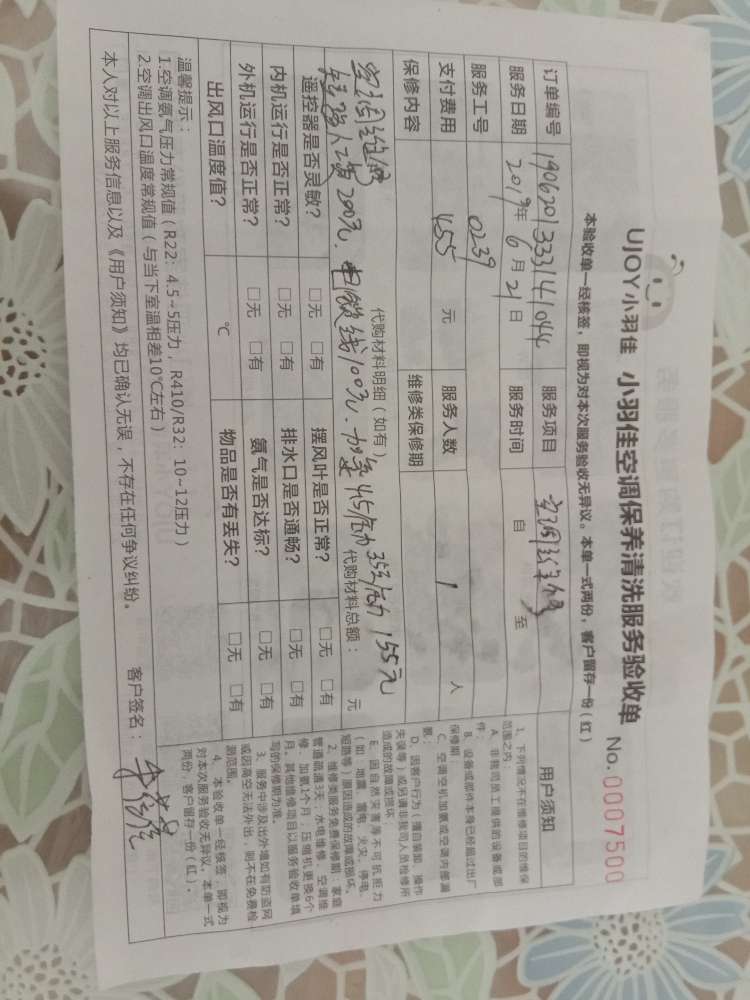 UJOY小羽佳 小羽佳空调保养清洗服务验收单 No.0007500
本验收单一经核签，即视为对本次服务验收无异议。本单一式两份，客户留存一份(红)
订单编号 190620133314104 服务项目 空调维修
服务日期 2019年 6月 21日 服务时间 自 至
服务工号 0239
支付费用 455 元 服务人数 1 人
保修内容 维修类保修期
代购材料明细（如有） 代购材料总额： 元
空调维修
人工费200元，电 线100元.加氟 4.5/压力 35元/压力 155元
遥控器是否灵敏？ □无 □有 摆风叶是否正常？ □无 □有
内机运行是否正常？ □无 □有 排水口是否通畅？ □无 □有
外机运行是否正常？ □无 □有 氨气是否达标？ □无 □有
出风口温度值？ ℃ 物品是否有丢失？ □无 □有
温馨提示：
1.空调氨气压力常规值（R22：4.5~5压力，R410/R32：10~12压力）
2.空调出风口温度常规值（与当下室温相差10℃左右）
本人对以上服务信息以及《用户须知》均已确认无误，不存在任何争议纠纷。 客户签名：
用户须知
1、下列情况不在维修项目的维保
范围之内：
A、非我司员工提供的设备或部
件；
B、设备或部件本身已经超过出厂
保修期
C、空调空机加氨或空调内部漏
氨；
D、因客户行为（擅自装卸、操作
失误等）或另请非我司人员检修所
造成的故障或损坏
E、因自然灾害等不可抗拒力
（如：地震、雷电、火灾、停电、
短路等）原因造成的故障或损坏。
2、维修类服务免费保修期：家庭
管道疏通3天；水电维修、空调维
修、加氨1个月；压缩机更换6个
月。其他维修项目以服务验收单填
写的保修期为准。
3、服务中涉及出外墙如有防盗网
或因高空无法外出，则不在免费检
测范围。
4、本验收单一经核签，即视为
对本次服务验收无异议。本单一式
两份，客户留存一份（红）。